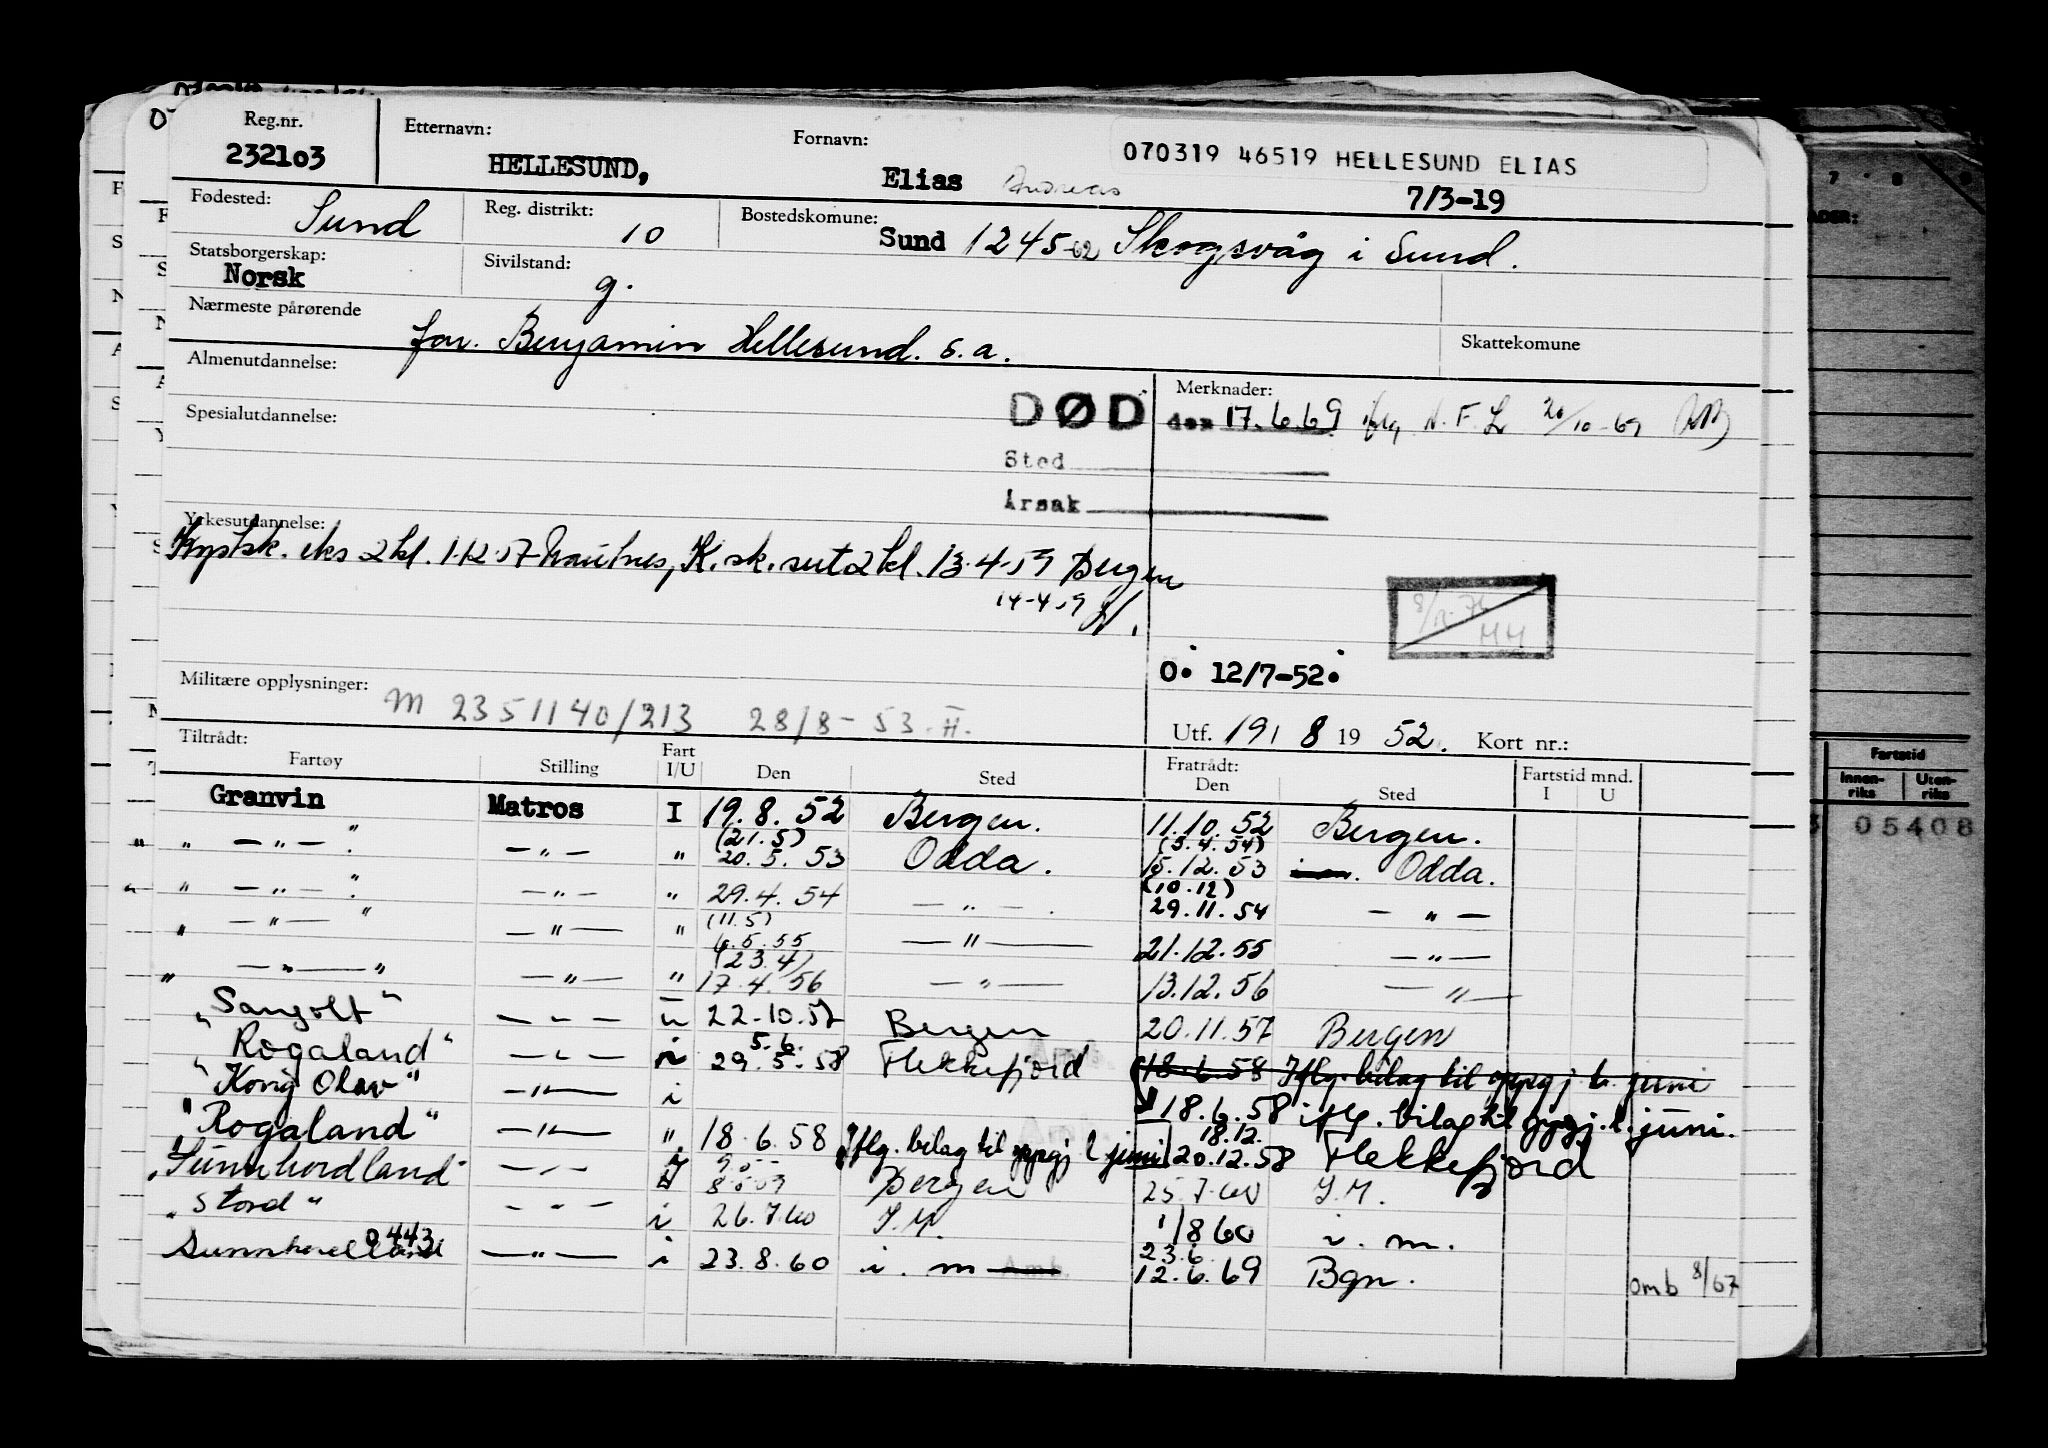 Reg.nr. Etternavn: Fornavn: 070319 46519 HELLESUND ELIAS
232103 HELLESUND, Elias Andreas 7/3-19
Fødested: Reg. distrikt: Bostedskomune:
Sund 10 Sund 1245-62 Skogsvåg i Sund.
Statsborgerskap: Sivilstand:
Norsk g.
Nærmeste pårørende Skattekomune
far. Benjamin Hellesund. s.a.
Almenutdannelse: Merknader:
DØD den 17.6.69 iflg N.F.L 20/10-69
Spesialutdannelse:
Sted
Årsak
Yrkesutdannelse:
Kystsk. eks 2 kl. 1-12-57 K. sk. sert 2 kl. 13-4-59 Bergen
14-4-59
O. 12/7-52.
Militære opplysninger: M 2351140/213 28/8-53 II. Utf. 19/ 8 19 52. Kort nr.:
Tiltrådt: Fratrådt: Fartstid mnd.
Fartøy Stilling Fart I/U Den Sted Den Sted I U
Granvin Matros I 19.8.52 Bergen. 11.10.52 Bergen.
(21.5) (5.4.54)
" — " — " — " — " 20.5.53 Odda. 15.12.53 Odda.
(10.12)
" — " — " — " — " 29.4.54 — " — 29.11.54 — " —
(11.5)
" — " — " — " — " 6.5.55 — " — 21.12.55 — " —
(23.4)
" — " — " — " — " 17.4.56 — " — 13.12.56 — " —
"Sangolt" — " — u 22-10.57 Bergen 20.11.57 Bergen
5.6.
"Rogaland" — " — i 29.5.58 Flekkefjord 18.6.58 Iflg. bilag til oppgj. t. juni
"Kong Olav" — " — i 18.6.58 iflg. bilag til oppgj. t. juni.
18.12.
"Rogaland" — " — " 18.6.58 Iflg. bilag til oppgj t juni 20.12.58 Flekkefjord
"Sunnhordland" — " — Bergen 25.7.60 I.M.
"Stord" — " — i 26.7.60 I.M. 1/8 60 i.m.
0443 23.6
Sunnhordland — " — i 23.8.60 i.m 12.6.69 Bgn. omb 8/67
Fartstid
Innen-riks Uten-riks
05408